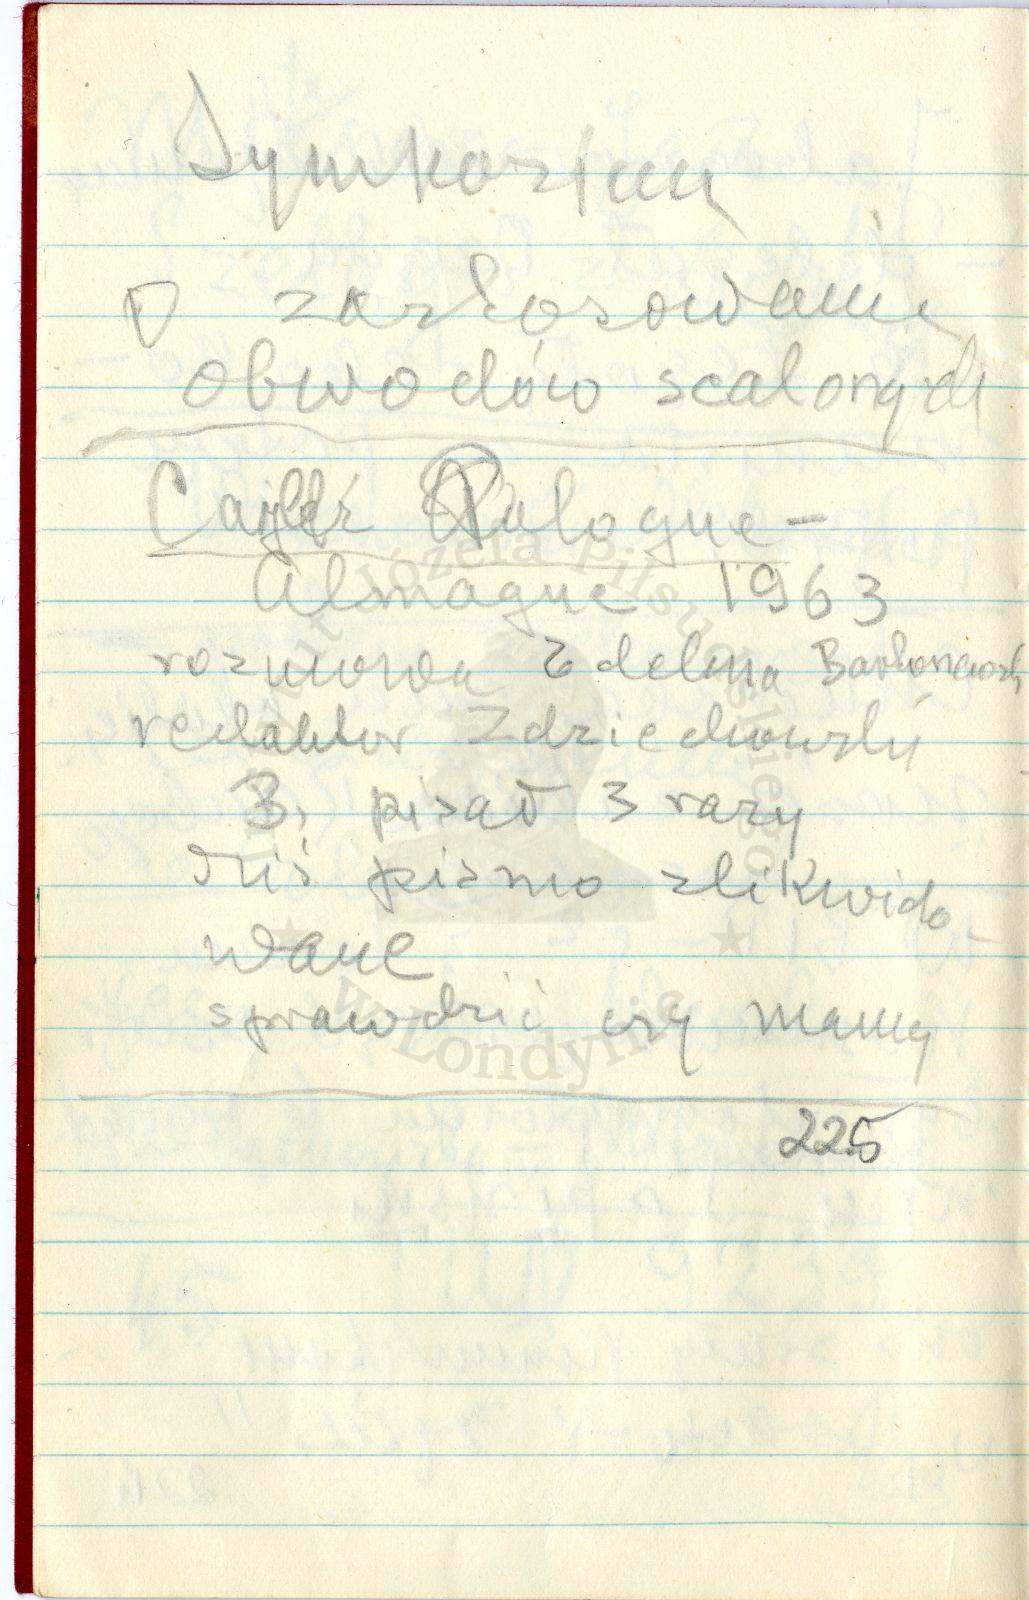 Sympozjum
o zastosowaniu
obwodów scalonych
Pologne -
Almagne 1963
rozmowa z delma
redaktor Zdziechowski
B. pisał 3 razy
dziś pismo zlikwido-
wane
sprawdzić czy mamy
225
Instytut Józefa Piłsudskiego
w Londynie